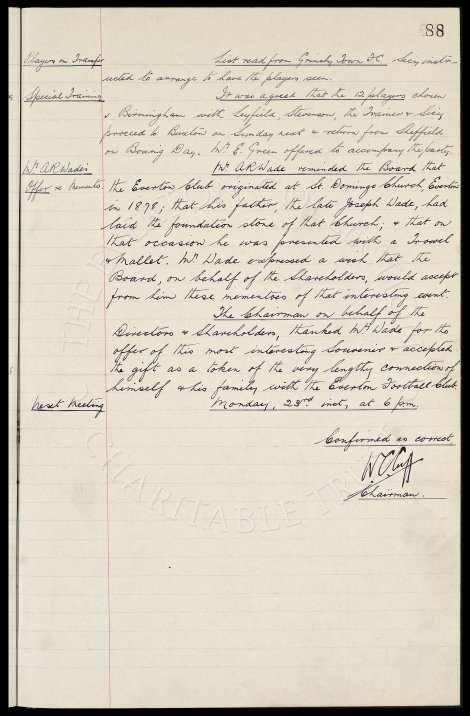 88
Players on Transfer List read from Grimsby Town F.C. Secy instructed to arrange to have the players seen.
Special Training It was agreed that the 12 players chosen
v Birmingham with Leyfield, Stevenson, the Trainer & Secy
proceed to Buxton on Sunday next & return from Sheffield
on Boxing Day. Mr E. Green offered to accompany the party.
Mr A R Wade's Mr A R Wade reminded the Board that
Offer re Memento. the Everton Club originated at St. Domingo Church, Everton
in 1878; that his father, the late Joseph Wade, had
laid the foundation stone of that Church, & that on
that occasion he was presented with a Trowel
& Mallet. Mr Wade expressed a wish that the
Board, on behalf of the Shareholders, would accept
from him these mementoes of that interesting event.
The Chairman on behalf of the
Directors & Shareholders, thanked Mr Wade for the
offer of this most interesting Souvenir & accepted
the gift as a token of the very lengthy connection of
himself & his family with the Everton Football Club.
Next Meeting Monday, 23rd inst, at 6 p.m.
Confirmed as correct,
W C Cuff
Chairman.
CHARITABLE